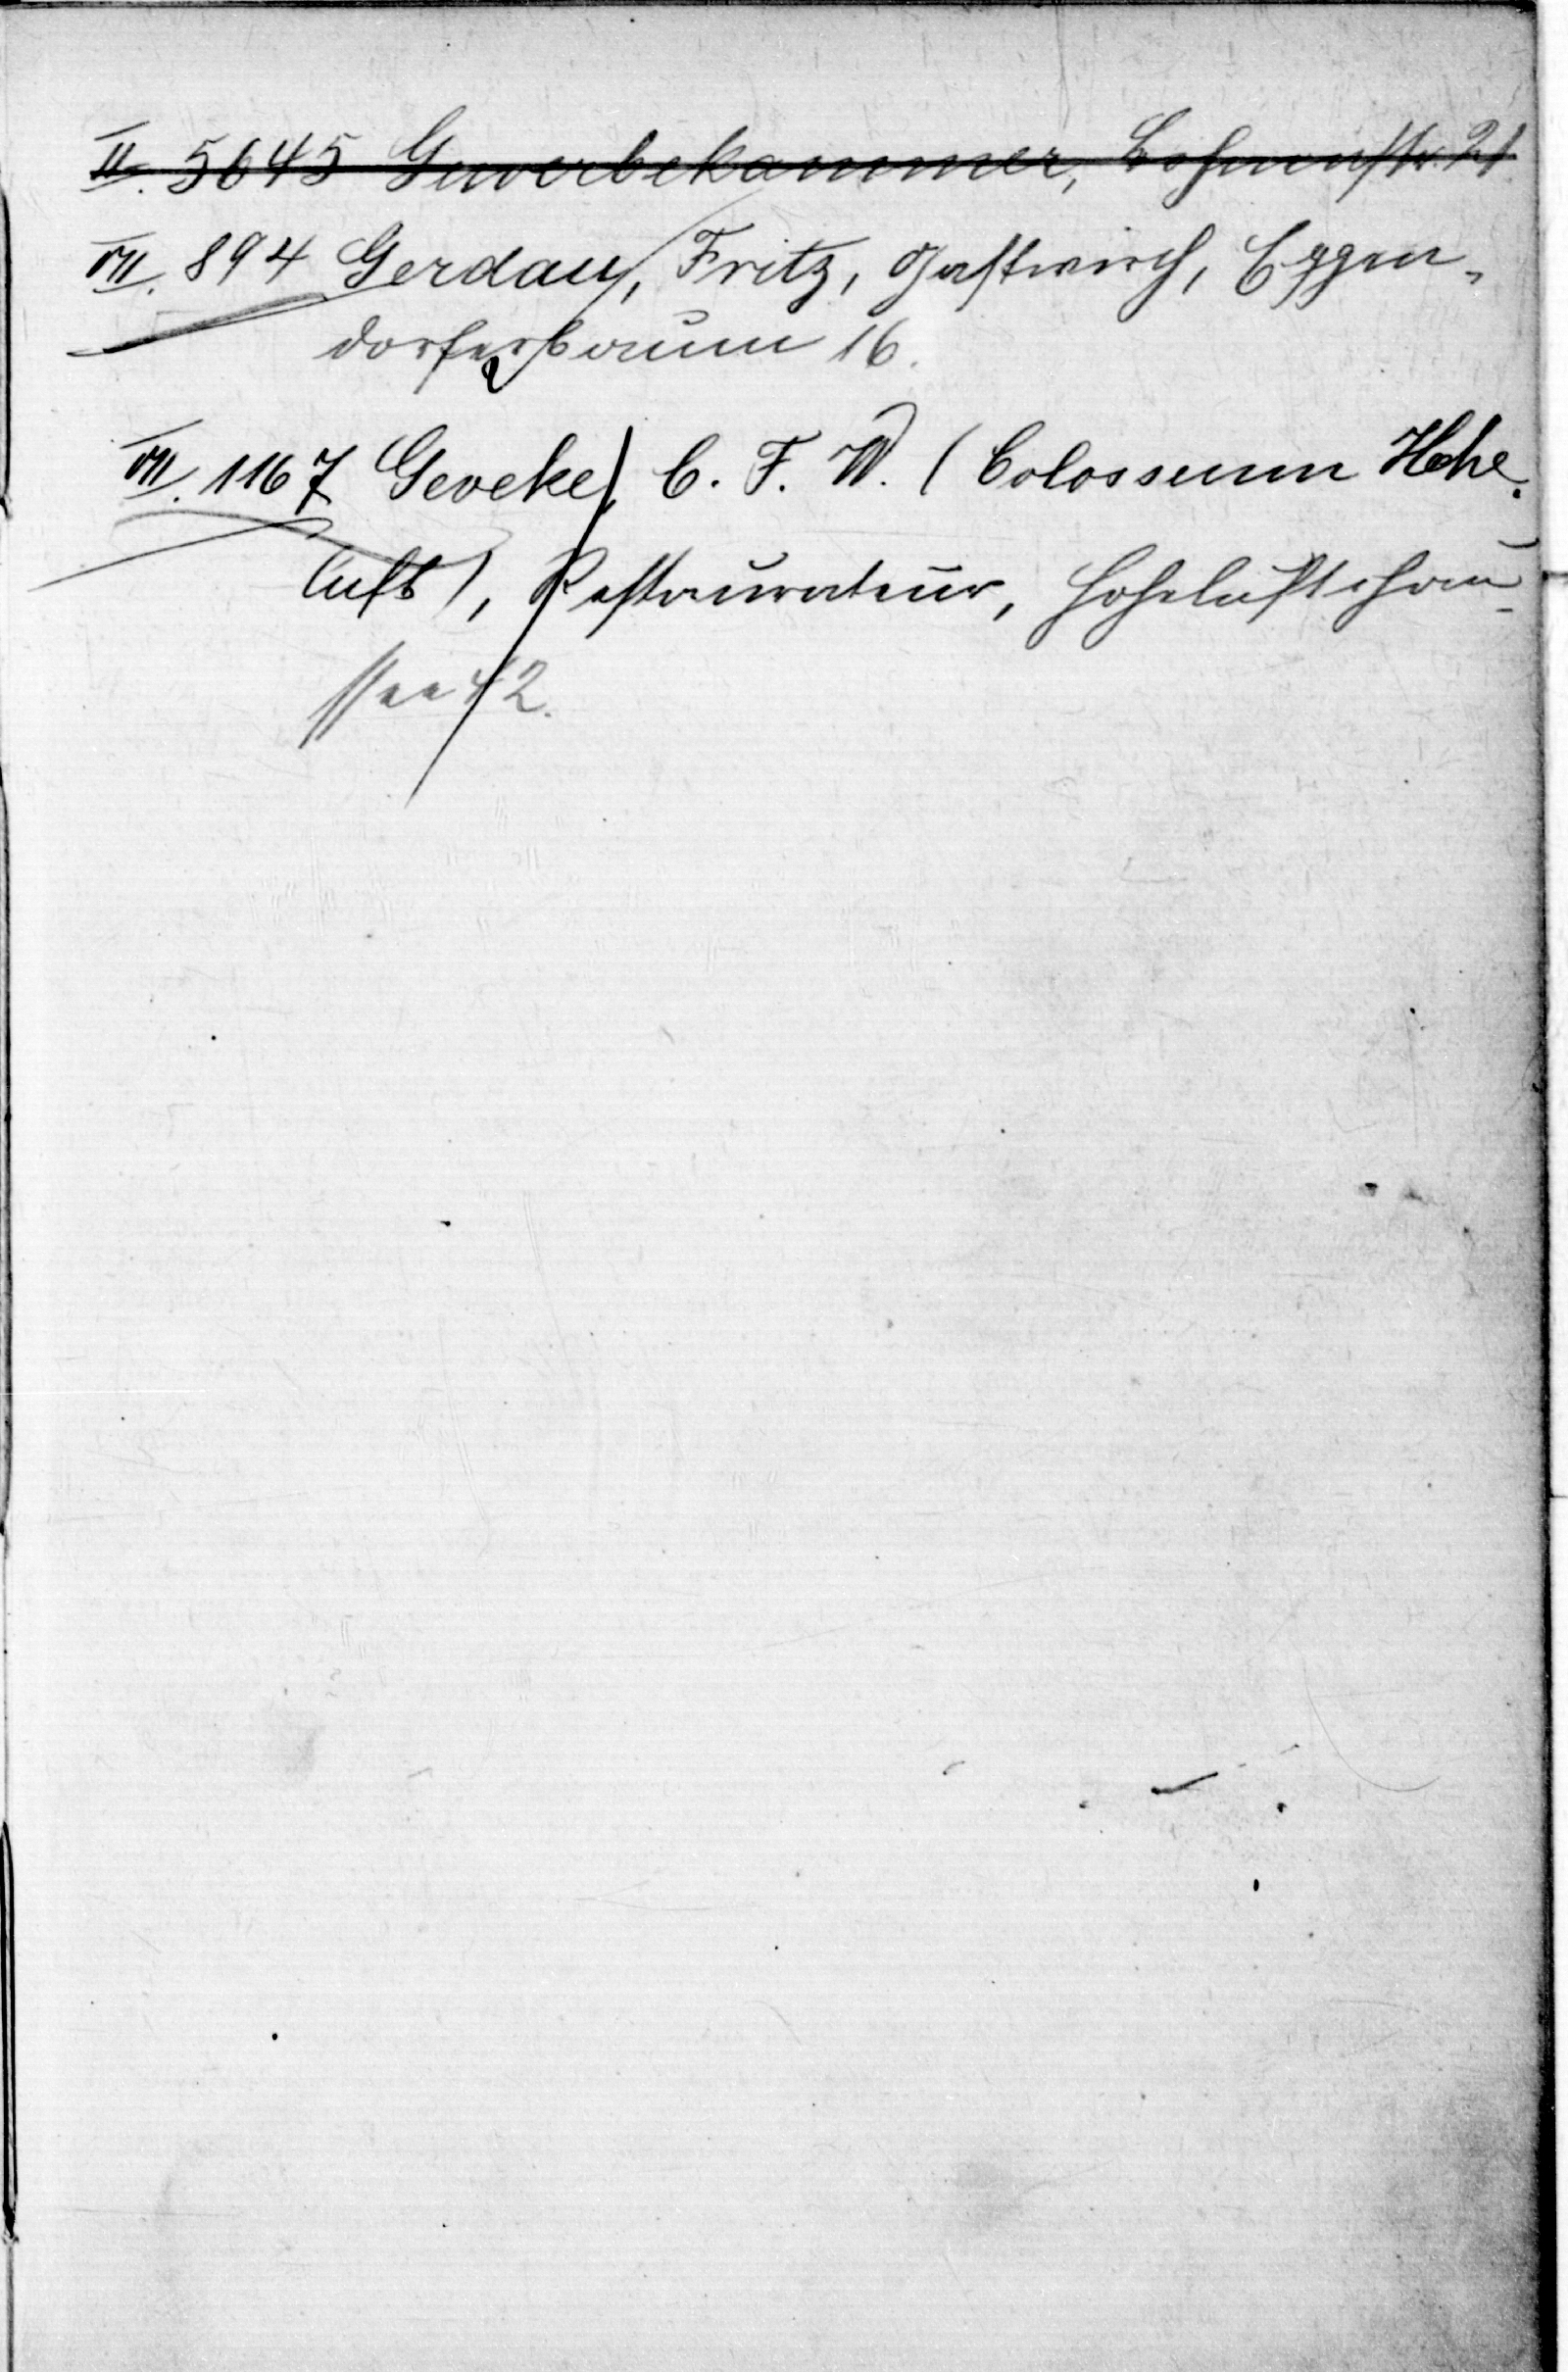 II. 5645 Gewerbekammer, Bohnenstr. 21
VII. 894 Gerdau, Fritz, Gastwirth, Eppen-
dorferbaum 16.
VII. 1167 Geveke, C. F. W. (Colosseum Hohe-
luft), Restaurateur, Hoheluftchau-
ssee 42.